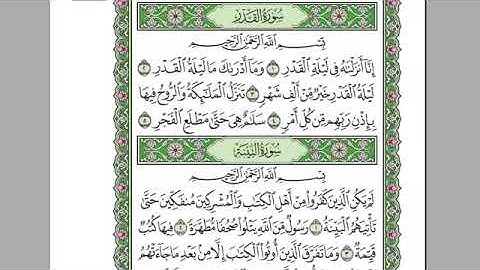 سُورَةُ القَدْرِ
بِسْمِ اللَّهِ الرَّحْمَٰنِ الرَّحِيمِ
إِنَّا أَنزَلْنَٰهُ فِى لَيْلَةِ الْقَدْرِ ١ وَمَا أَدْرَىٰكَ مَا لَيْلَةُ الْقَدْرِ ٢
لَيْلَةُ الْقَدْرِ خَيْرٌ مِّنْ أَلْفِ شَهْرٍ ٣ تَنَزَّلُ الْمَلَٰٓئِكَةُ وَالرُّوحُ فِيهَا
بِإِذْنِ رَبِّهِم مِّن كُلِّ أَمْرٍ ٤ سَلَٰمٌ هِىَ حَتَّىٰ مَطْلَعِ الْفَجْرِ ٥
سُورَةُ البَيِّنَةِ
بِسْمِ اللَّهِ الرَّحْمَٰنِ الرَّحِيمِ
لَمْ يَكُنِ الَّذِينَ كَفَرُوا مِنْ أَهْلِ الْكِتَٰبِ وَالْمُشْرِكِينَ مُنفَكِّينَ حَتَّىٰ
تَأْتِيَهُمُ الْبَيِّنَةُ ١ رَسُولٌ مِّنَ اللَّهِ يَتْلُوا صُحُفًا مُّطَهَّرَةً ٢ فِيهَا كُتُبٌ
قَيِّمَةٌ ٣ وَمَا تَفَرَّقَ الَّذِينَ أُوتُوا الْكِتَٰبَ إِلَّا مِنۢ بَعْدِ مَا جَآءَتْهُمُ